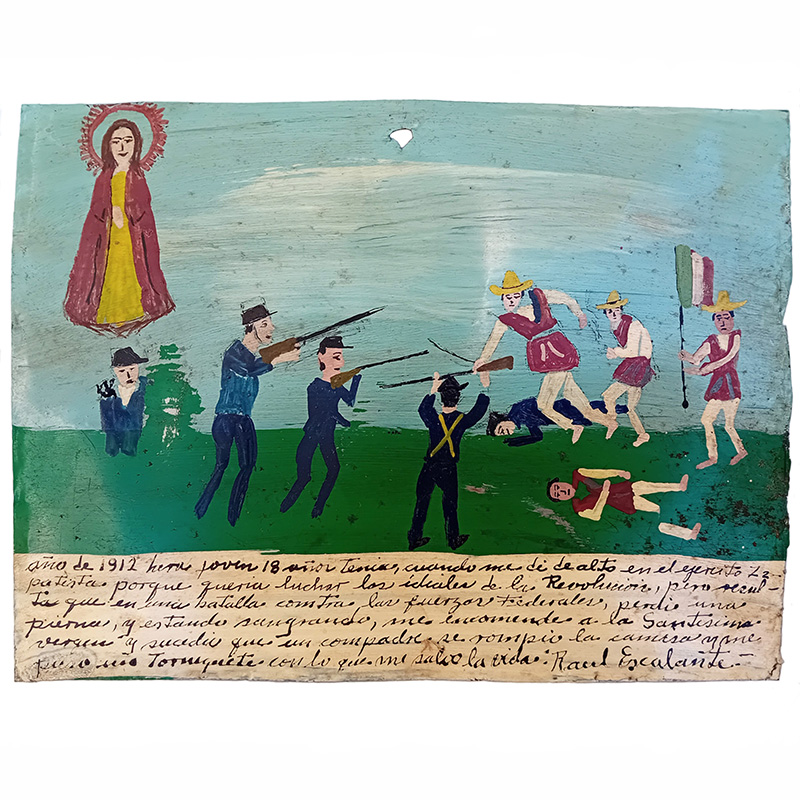 año de 1912 hera joven 18 años tenia, cuando me di de alto en el ejercito Za-
patista porque queria luchar los ideales de la Revolución, pero resul-
ta que en una batalla comtra, las fuerzas Féderales, perdi una
pierna, y estando sangrando, me encomende a la Santisima
vergen y sucedio que un compadre se rompio la camisa y me
puso un Tornequéte con lo que me salvo la vida. Raul Escalante.-